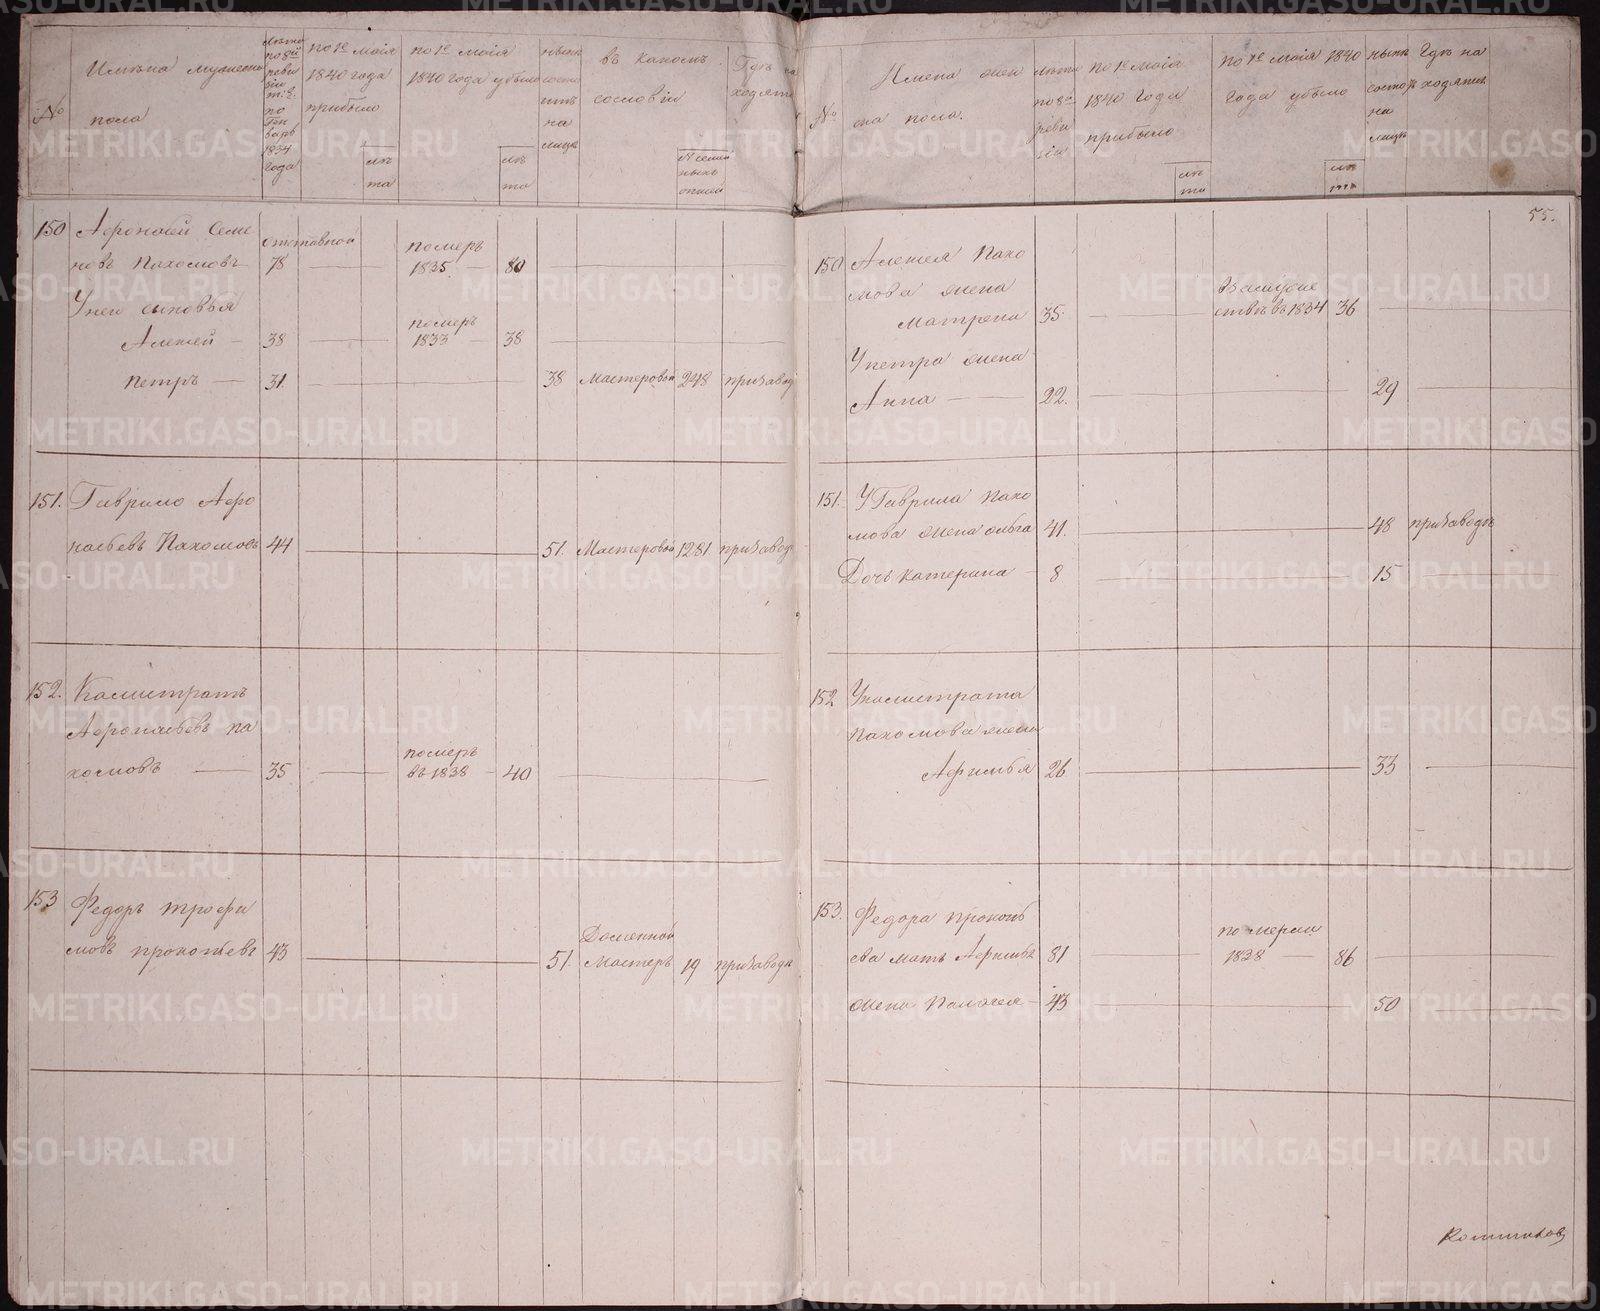 №
Имѣна мужеска
пола
Лѣта
по 8й
реви
зіи
т: е:
по
Ген
варь
1834
года
по 1е маія
1840 года
прибыло
лѣ
та
по 1е маія
1840 года убыло
лѣ
та
нынѣ
состо
итъ
на
лицо
въ какомъ
сословіи
№ семей
ныхъ
описей
Гдѣ на
ходятся
150 Афонасей Семе
новъ Пахомовъ 78 отставной померъ 1835 80
У неи сыновья
Алексей 38 померъ 1833 38
Петръ 31. 38 Мастеровой 248 при завод
151. Гаврило Афо
насьевъ Пахомовъ 44 51. Мастеровой 1281 при завод
152. Калистратъ
Афонасьевъ па
хомовъ 35 померъ въ 1838 40
153 Федоръ трофи
мовъ прокопьевъ 43 51. Доменной Мастеръ 19 при заводѣ
№
Имена жен
ска пола.
лѣта
по 8й
реви
зіи
по 1е маія
1840 года
прибыло
лѣ
та
по 1е маія 1840
года убыло
лѣ
та
нынѣ
состоитъ
на
лицо
Гдѣ на
ходятся
55.
150 Алексея Пахо
мова жена
Матрена 35. в замуже ствѣ въ 1834 36
У петра жена
Анна 22. 29
151. У Гаврила Пахо
мова жена ольга 41. 48 при заводѣ
Дочь катерина 8 15
152 У калистрата
пахомова жена
Афимья 26 33
153. Федора прокопь
ева мать Афимья 81 померла 1838 86
жена Палагея 43 50
METRIKI.GASO-URAL.RU